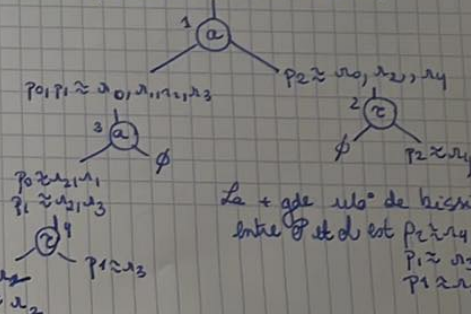 1
a
p0,p1 ≈ r0,r1,r2,r3
p2 ≈ r0,r2,r4
2
τ
3
a
φ
φ
p2 ≈ r4
p0 ≈ r2,r1
p1 ≈ r2,r3
4
τ
p1 ≈ r3
r2
La + gde de
entre P et est p2 ≈ r4
p1 ≈
p1 ≈